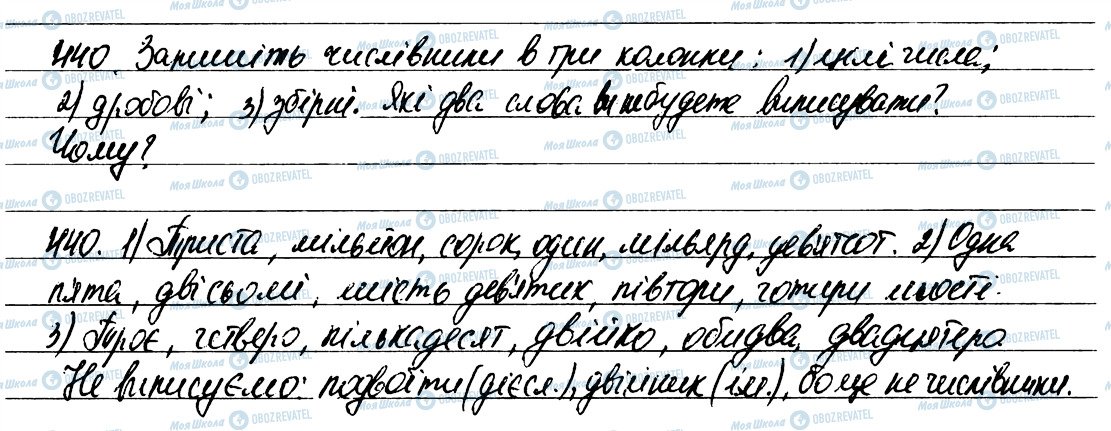 440. Запишіть числівники в три колонки: 1) цілі числа;
2) дробові; 3) збірні. Які два слова ви не будете виписувати?
Чому?
440. 1) Триста, мільйон, сорок, один, мільярд, дев'ятсот. 2) Одна
п'ята, дві сьомі, шість дев'ятих, півтори, чотири шості.
3) Троє, четверо, кількадесят, двійко, обидва, двадцятеро
Не виписуємо: подвоїти (дієсл.), двійник (ім.), бо це не числівники.